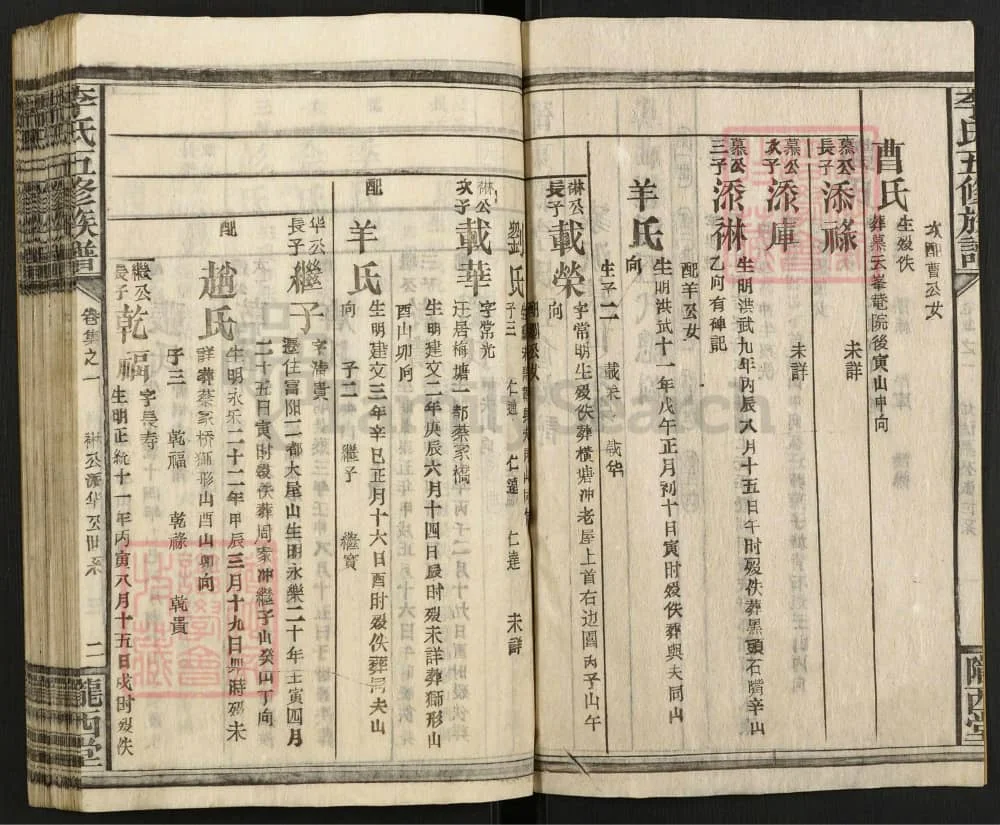 李氏五修族譜
隴西堂
次配曹公女
曹氏
生歿佚
葬暮云峯菴院後寅山申向
慕公長子
添祿
未詳
慕公次子
添庫
未詳
慕公三子
添琳
生明洪武九年丙辰八月十五日午时歿佚葬黑頭石嘴辛山
乙向有碑記
配羊公女
羊氏
生明洪武十一年戊午正月初十日寅时歿佚葬與夫同山
向
生子二 載荣 載华
琳公長子
載榮
字常明生歿佚葬横塘冲老屋上首右边圍丙子山午
向
劉氏
子三 仁達 未詳
琳公次子
載華
字常光
迁居梅塘一都蔡家橋
生明建文二年庚辰六月十四日辰时歿未詳葬獅形山
酉山卯向
配
羊氏
生明建文三年辛巳正月十六日酉时歿佚葬同夫山
向
子二 繼子 繼寳
华公長子
繼子
遷住富阳二都大屋山生明永樂二十年壬寅四月
二十五日寅时歿佚葬周家冲繼子山癸山丁向
配
趙氏
生明永乐二十二年甲辰三月十九日
時歿未
詳葬蔡家桥獅形山酉山卯向
子三 乾福 乾祿 乾貴
繼公長子
乾福
字長寿
生明正統十一年丙寅八月十五日戍时歿佚
李氏五修族譜
卷集之一
琳公派华公世系
二
隴西堂
FamilySearch